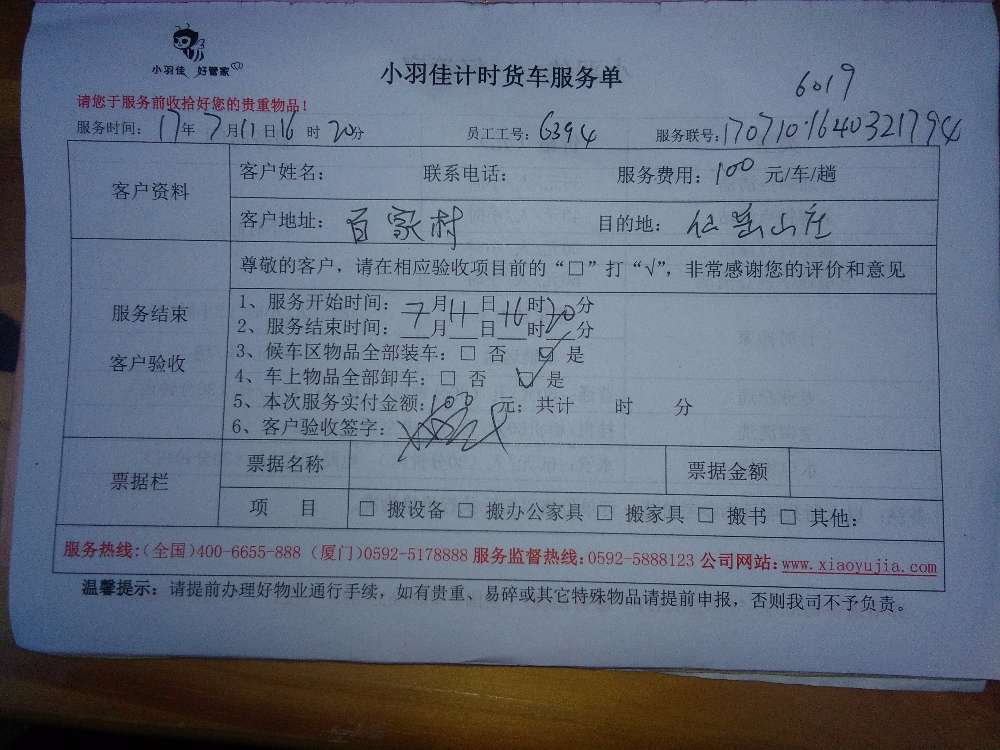 小羽佳 好管家
小羽佳计时货车服务单
6019
请您于服务前收拾好您的贵重物品！
服务时间：17年7月11日16时20分 员工工号：6394 服务联号：170710·1640321794
客户资料
客户姓名： 联系电话： 服务费用：100 元/车/趟
客户地址：百家村 目的地：仙岳山庄
服务结束
客户验收
尊敬的客户，请在相应验收项目前的“□”打“√”，非常感谢您的评价和意见
1、服务开始时间：7月11日16时20分
2、服务结束时间：__月__日__时__分
3、候车区物品全部装车：□ 否 □ 是
4、车上物品全部卸车：□ 否 □ 是
5、本次服务实付金额：100 元；共计 时 分
6、客户验收签字：
票据栏
票据名称 票据金额
项 目 □ 搬设备 □ 搬办公家具 □ 搬家具 □ 搬书 □ 其他：
服务热线：（全国）400-6655-888（厦门）0592-5178888 服务监督热线：0592-5888123 公司网站：www.xiaoyujia.com
温馨提示：请提前办理好物业通行手续，如有贵重、易碎或其它特殊物品请提前申报，否则我司不予负责。